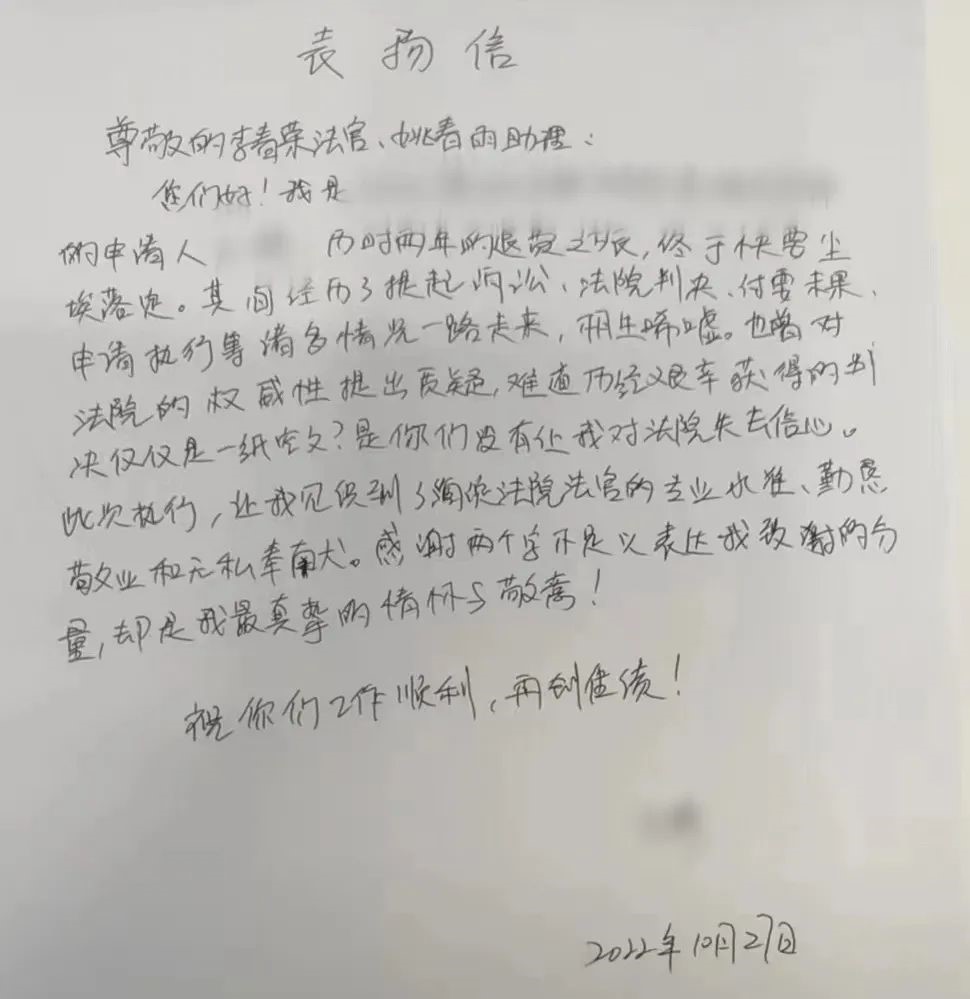 表扬信
尊敬的李春荣法官、姚春雨助理：
您们好！我是
的申请人 历时两年的退费之旅，终于快要尘
埃落定。其间经历了提起诉讼、法院判决、付要未果、
申请执行等诸多情况一路走来，相生唏嘘。也曾对
法院的权威性提出质疑，难道历经艰辛获得的判
决仅仅是一纸空文？是你们没有让我对法院失去信心。
此次执行，让我见识到了海淀法院法官的专业水准、勤恳
敬业和无私奉献。感谢两个字不足以表达我致谢的分
量，却是我最真挚的情怀与敬意！
祝你们工作顺利，再创佳绩！
2022年10月27日